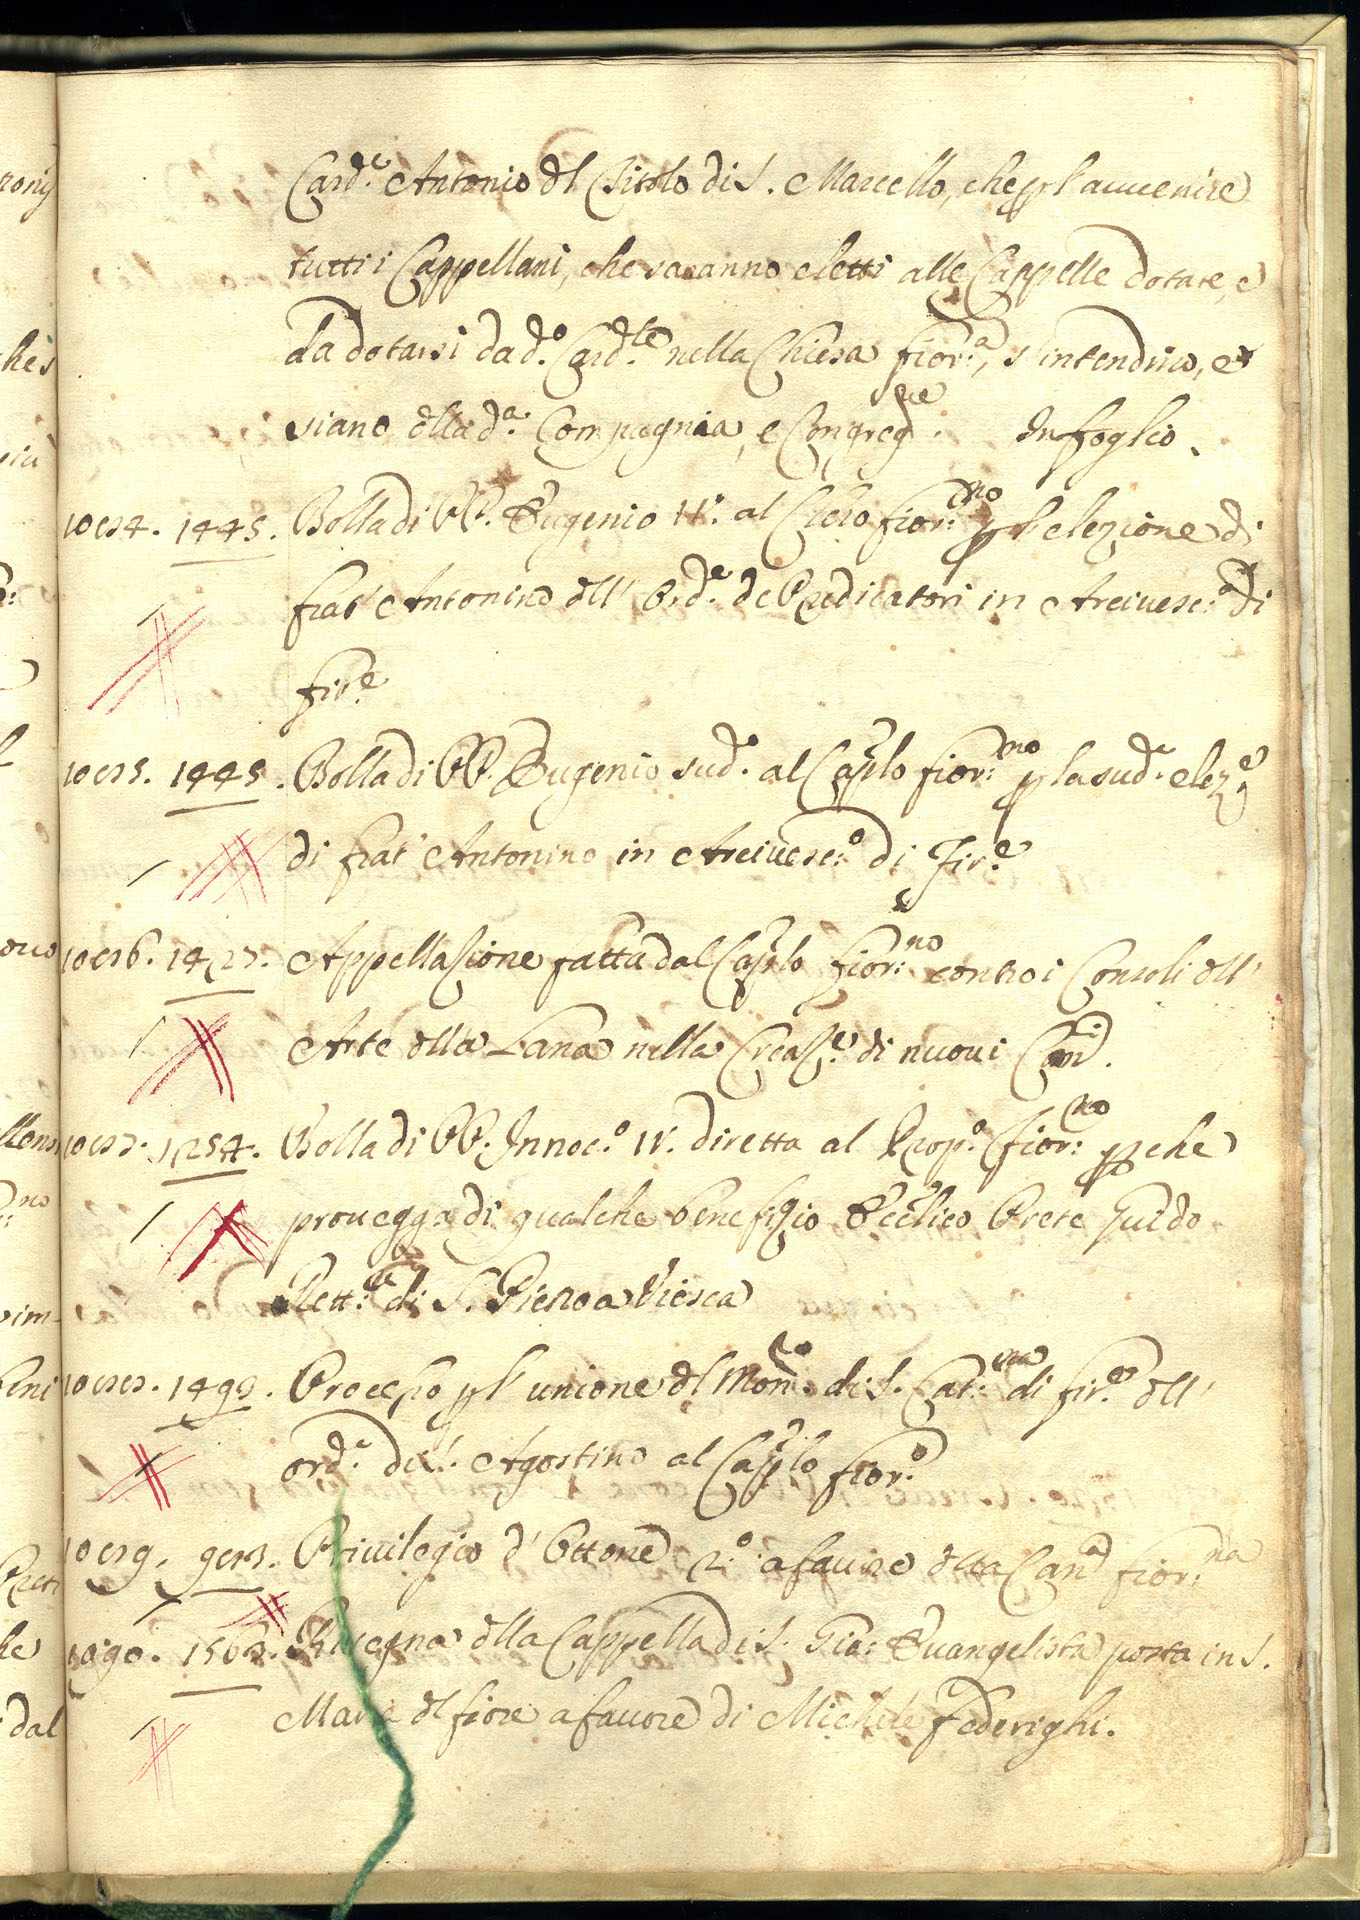 Card.e Antonio dl Titolo di S. Marcello, che pl' avvenire
tutti i Cappellani, che saranno eletti alle Cappelle dotate, e
da dotarsi da d.o Card.le nella Chiesa fior.a, s'intendino, et
siano dlla d.a Compagnia, e Congreg.ne In foglio.
1445. Bolla di PP. Eugenio 4.o al Clero fior.no p l'elezione di
frat' Antonino dll' Ord.e de Predicatori in Arcivesc.o di
fir.e
1445. Bolla di PP. Eugenio sud.o al Caplo fior.no p la sud.a elez.e
di frat' Antonino in Arcivesc.o di Fir.e
1427. Appellasione fatta dal Caplo fior.no contro i Consoli dll'
Arte dlla Lana nella Creaz.e di nuovi Can.
1254. Bolla di PP. Innoc.o IV. diretta al Prop.o fior.no pche
provegga di qualche benefizio Eccl.ico Prete Guido
Rett.re di S. Piero a
Processo pl' unione dl Mon.o di S. Cat.na di fir.e dll'
ord.e di S. Agostino al Caplo fior.o
Privilegio d' Ottone 2.o a favore dlla Can.a fior.na
Rasegna dlla Cappella di S. Gio: Evangelista posta in S.
Maria dl fiore a favore di Michele Federighi.